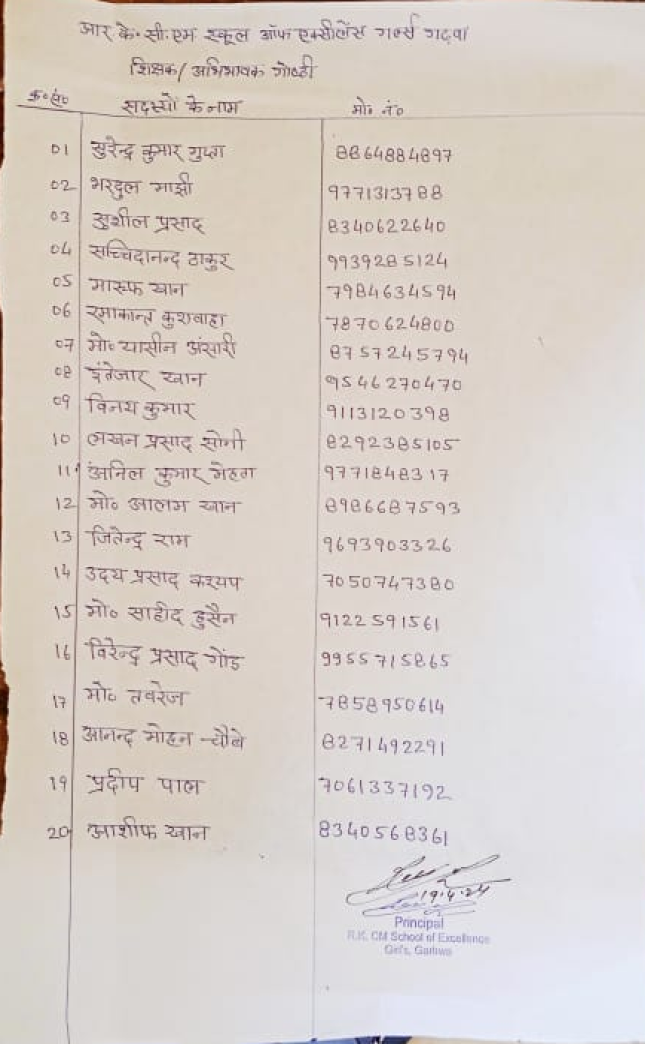 आर. के. सी. एम स्कूल ऑफ एक्सीलेंस गर्ल्स गढ़वा
शिक्षक/अभिभावक गोष्ठी
क्र०सं० सदस्यों के नाम मो० नं०
01 सुरेन्द्र कुमार गुप्ता 8864884897
02 भरदुल माझी 9771313788
03 सुशील प्रसाद 8340622640
04 सच्चिदानन्द ठाकुर 9939285124
05 मारूफ खान 7984634594
06 रमाकान्त कुशवाहा 7870624800
07 मो० यासीन अंसारी 8757245794
08 इंतेजार खान 9546270470
09 विनय कुमार 9113120398
10 लखन प्रसाद सोनी 8292385105
11 अनिल कुमार मेहता 9771848317
12 मो० आलम खान 8986687593
13 जितेन्द्र राम 9693903326
14 उदय प्रसाद कश्यप 7050747380
15 मो० साहीद हुसैन 9122591561
16 विरेन्द्र प्रसाद गोंड 9955715865
17 मो० तवरेज 7858950614
18 आनन्द मोहन चौबे 8271492291
19 प्रदीप पाल 7061337192
20 आशीफ खान 8340568361
19.4.24
Principal
R.K. CM School of Excellence
Girl's, Garhwa